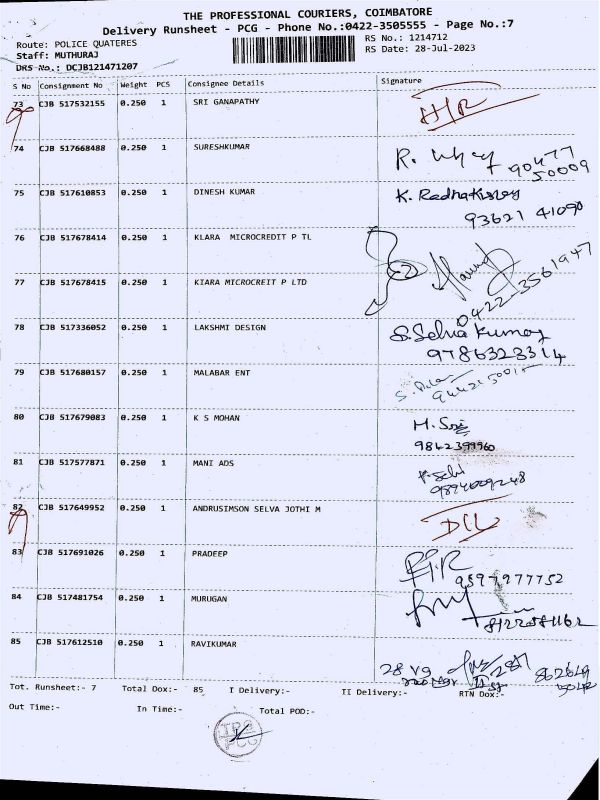 THE PROFESSIONAL COURIERS, COIMBATORE
Delivery Runsheet - PCG - Phone No.:0422-3505555 - Page No.:7
Route: POLICE QUATERES RS No.: 1214712
Staff: MUTHURAJ RS Date: 28-Jul-2023
DRS No.: DCJB121471207
S No Consignment No Weight PCS Consignee Details Signature
73 CJB 517532155 0.250 1 SRI GANAPATHY
74 CJB 517668488 0.250 1 SURESHKUMAR R. 90477
50009
75 CJB 517610853 0.250 1 DINESH KUMAR K. Radhakisney
93621 41090
76 CJB 517678414 0.250 1 KLARA MICROCREDIT P TL
77 CJB 517678415 0.250 1 KIARA MICROCREIT P LTD 0422-3561947
78 CJB 517336052 0.250 1 LAKSHMI DESIGN S. Selva Kumar
9786323314
79 CJB 517680157 0.250 1 MALABAR ENT
80 CJB 517679083 0.250 1 K S MOHAN
9842399960
81 CJB 517577871 0.250 1 MANI ADS
9894609248
82 CJB 517649952 0.250 1 ANDRUSIMSON SELVA JOTHI M
83 CJB 517691026 0.250 1 PRADEEP
9597977752
84 CJB 517481754 0.250 1 MURUGAN
85 CJB 517612510 0.250 1 RAVIKUMAR
Tot. Runsheet:- 7 Total Dox:- 85 I Delivery:- II Delivery:- RTN Dox:-
Out Time:- In Time:- Total POD:-